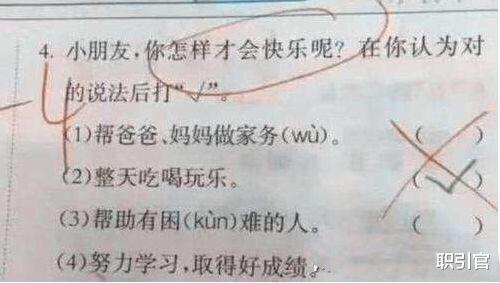 4. 小朋友,你怎样才会快乐呢?在你认为对
的说法后打“√”。
(1)帮爸爸、妈妈做家务(wù)。 ( )
(2)整天吃喝玩乐。 (√)
(3)帮助有困(kùn)难的人。 ( )
(4)努力学习,取得好成绩。
-4
职引官